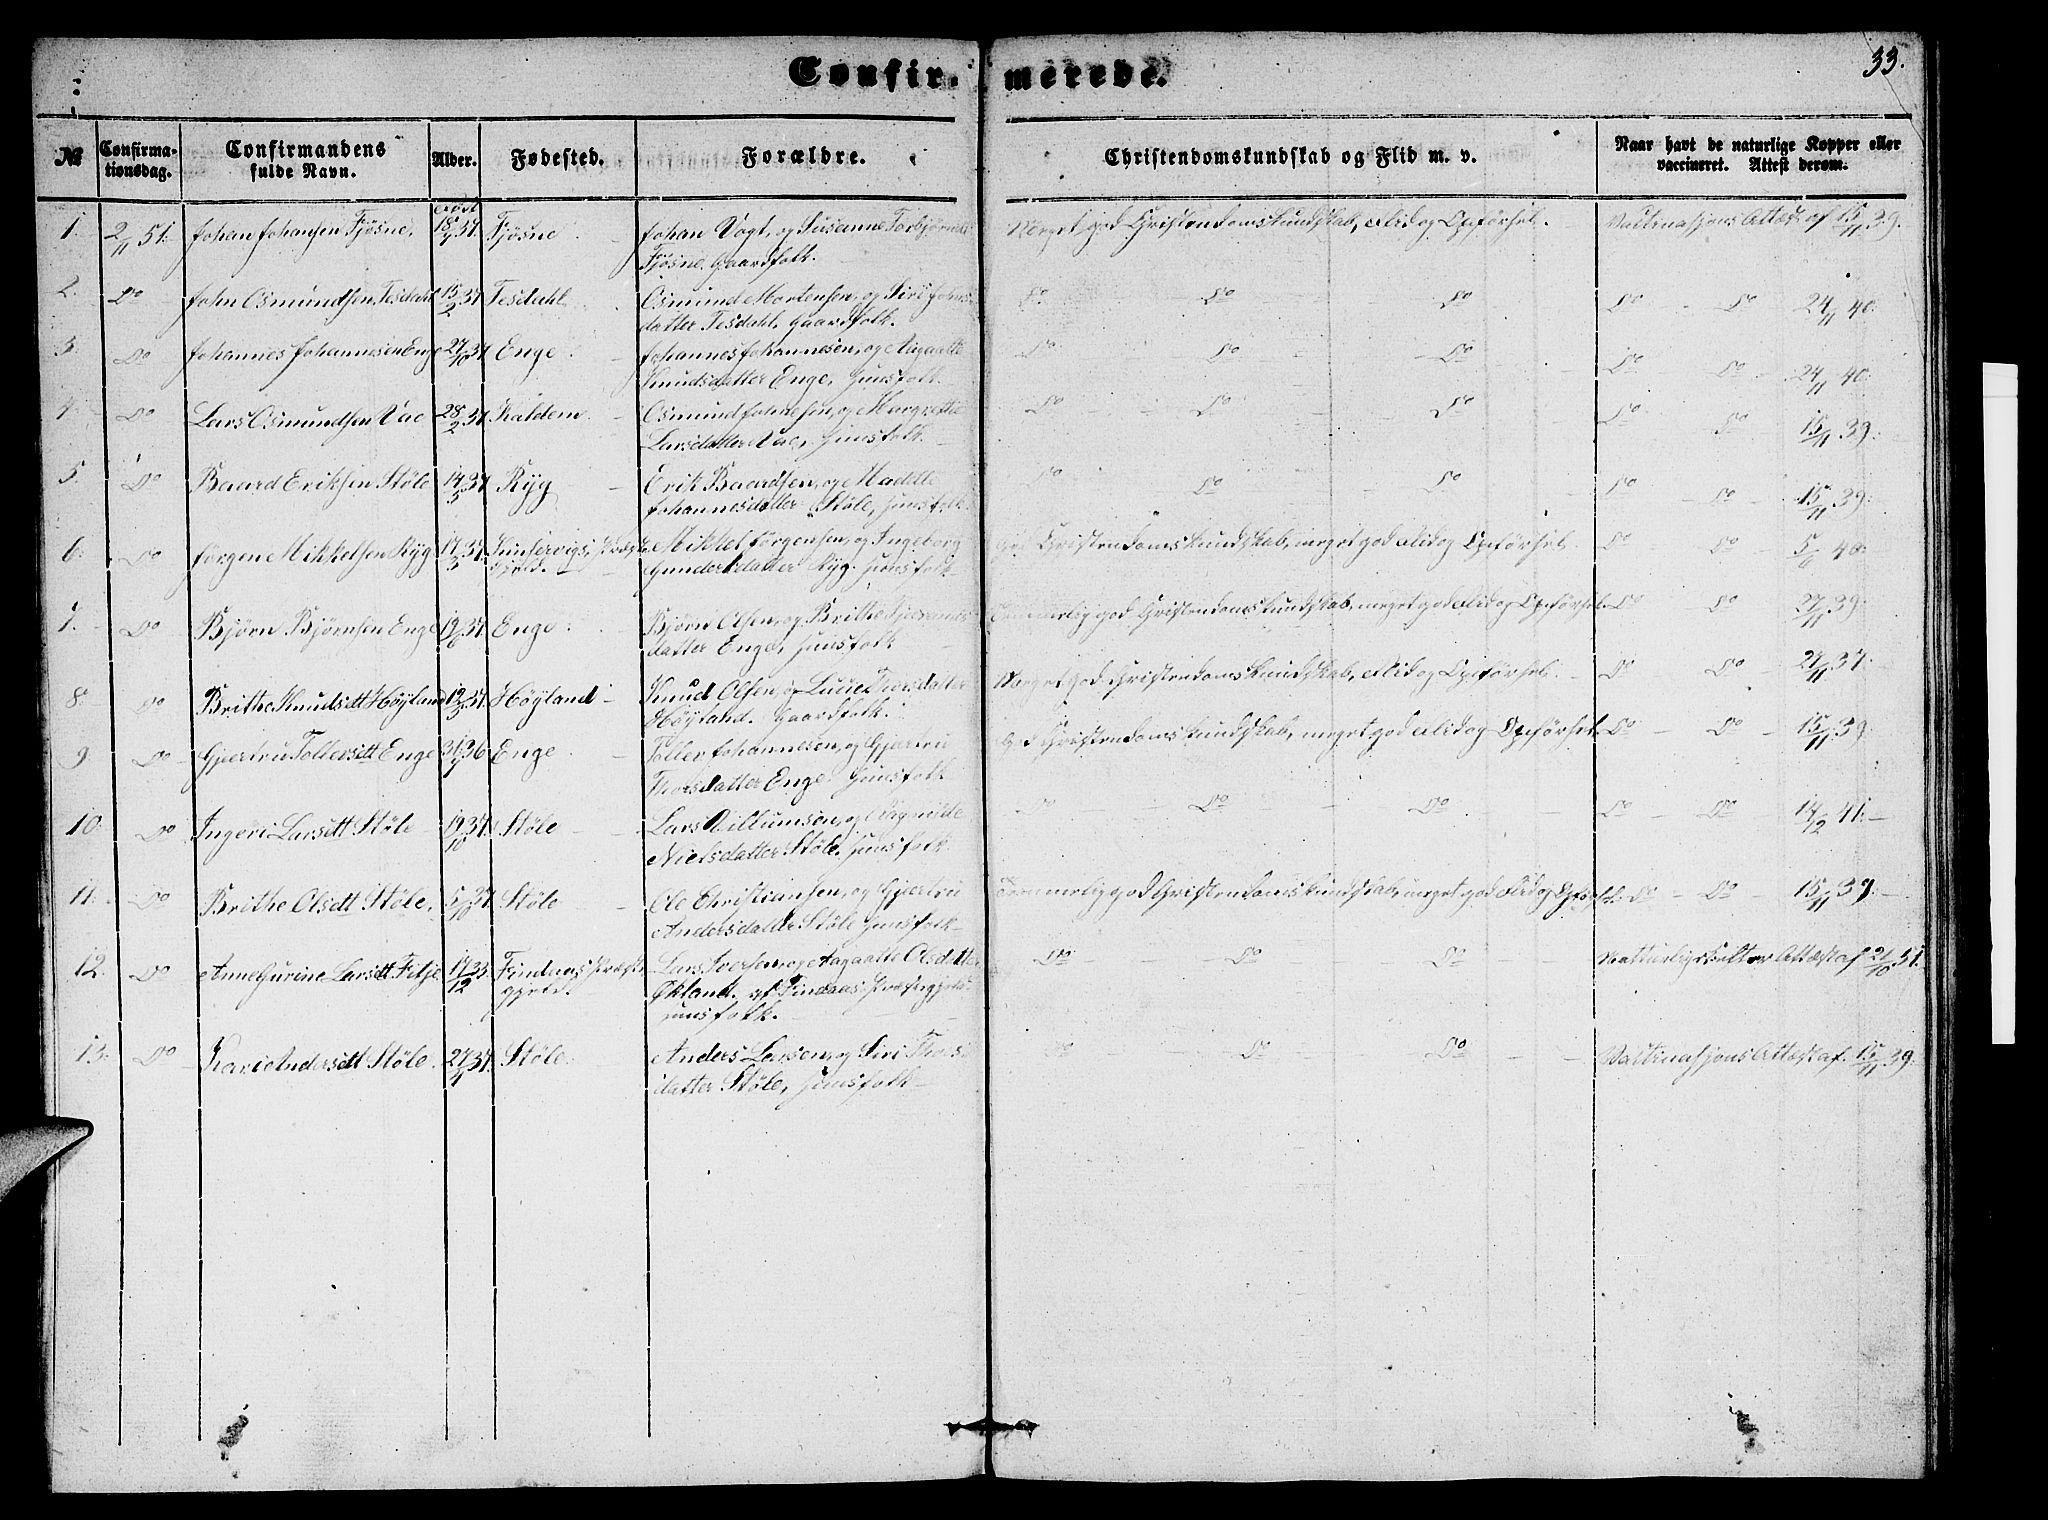 Confirmerede.
33.
№ Confirmationsdag. Confirmandens fulde Navn. Alder. Fødested. Forældre. Christendomskundskab og Flid m. v. Naar havt de naturlige Kopper eller vaccineret. Attest derom.
1. 2/11 51. Johan Johansen Fjøsne. født 18/4 37. Fjøsne Johan Vogt, og Susanne Torbjørnsd. Meget god Christendomskundskab, Flid og Opførsel. Vactinasjons Attest af 15/11 39.
Fjøsne, Gaardfolk.
2. Do John Osmundsen Tesdahl 15/2 37 Tesdahl Osmund Mortensen, og Siri Johns- Do Do Do Do Do 24/11 40.
datter Tesdahl, Gaardfolk.
3. Do Johannes Johannesen Enge 27/10 37 Enge Johannes Johannesen, og Aagaatte Do Do Do Do Do 24/11 40.
Knudsdatter Enge, Huusfolk.
4. Do Lars Osmundsen Vae 28/2 37 Kaldem Osmund Johnesen, og Margrethe Do Do Do Do Do 15/11 39.
Larsdatter Vae, Huusfolk.
5. Do Baard Eriksen Støle 14/5 37 Ryg Erik Baardsen, og Madele Do Do Do Do Do 15/11 39.
Johannesdatter Støle, Huusfolk.
6. Do Jørgen Mikkelsen Ryg 17/3 37. Kinservigs Præste- Mikkel Jørgensen, og Ingeborg God Christendomskundskab, meget god Flid og Opførsel. Do Do 5/6 40.
gjeld. Gundersdatter Ryg. Huusfolk
7. Do Bjørn Bjørnsen Enge 19/6 37. Enge Bjørn Olsen, og Brithe god Christendomskundskab, meget god Flid og Opførsel. Do Do 27/11 39.
datter Enge, Huusfolk
8. Do Brithe Knudsdt Høyland 12/3 37. Høyland Knud Olsen, og Lucie Thorsdatter Meget god Christendomskundskab, Flid og Opførsel. Do Do 27/11 37.
Høyland. Gaardfolk.
9 Do Gjertru Tollersdt Enge 31/7 36 Enge Toller Johannesen, og Gjertru God Christendomskundskab, meget god Flid og Opførsel. Do Do 15/11 39.
Thorsdatter Enge. Huusfolk
10. Do Ingeri Larsdt Støle 19/10 37. Støle Lars Villumsen, og Do Do Do Do Do 14/12 41.
Nielsdatter Støle. Huusfolk.
11. Do Brithe Olsdt Støle. 5/10 37. Støle Ole Christiansen, og Gjertru Temmelig god Christendomskundskab, meget god Flid og Opførsel. Do Do 15/11 39.
Andersdatter Støle Huusfolk
12. Do Anne Gurine Larsdt Fitje 17/12 35. Findaas Præste- Lars Iversen, og Aagaatte Olsdatter Do Do Do Natturligkopper Attest af 21/10 51.
gjeld. Økland. af Findaas Præstegjeld.
Huusfolk.
13. Do Kari Andersdt Støle. 27/4 37. Støle. Anders Larsen, og Siri Thors- Do Do Do Vactinasjons Attest af. 15/11 39.
datter Støle, Huusfolk